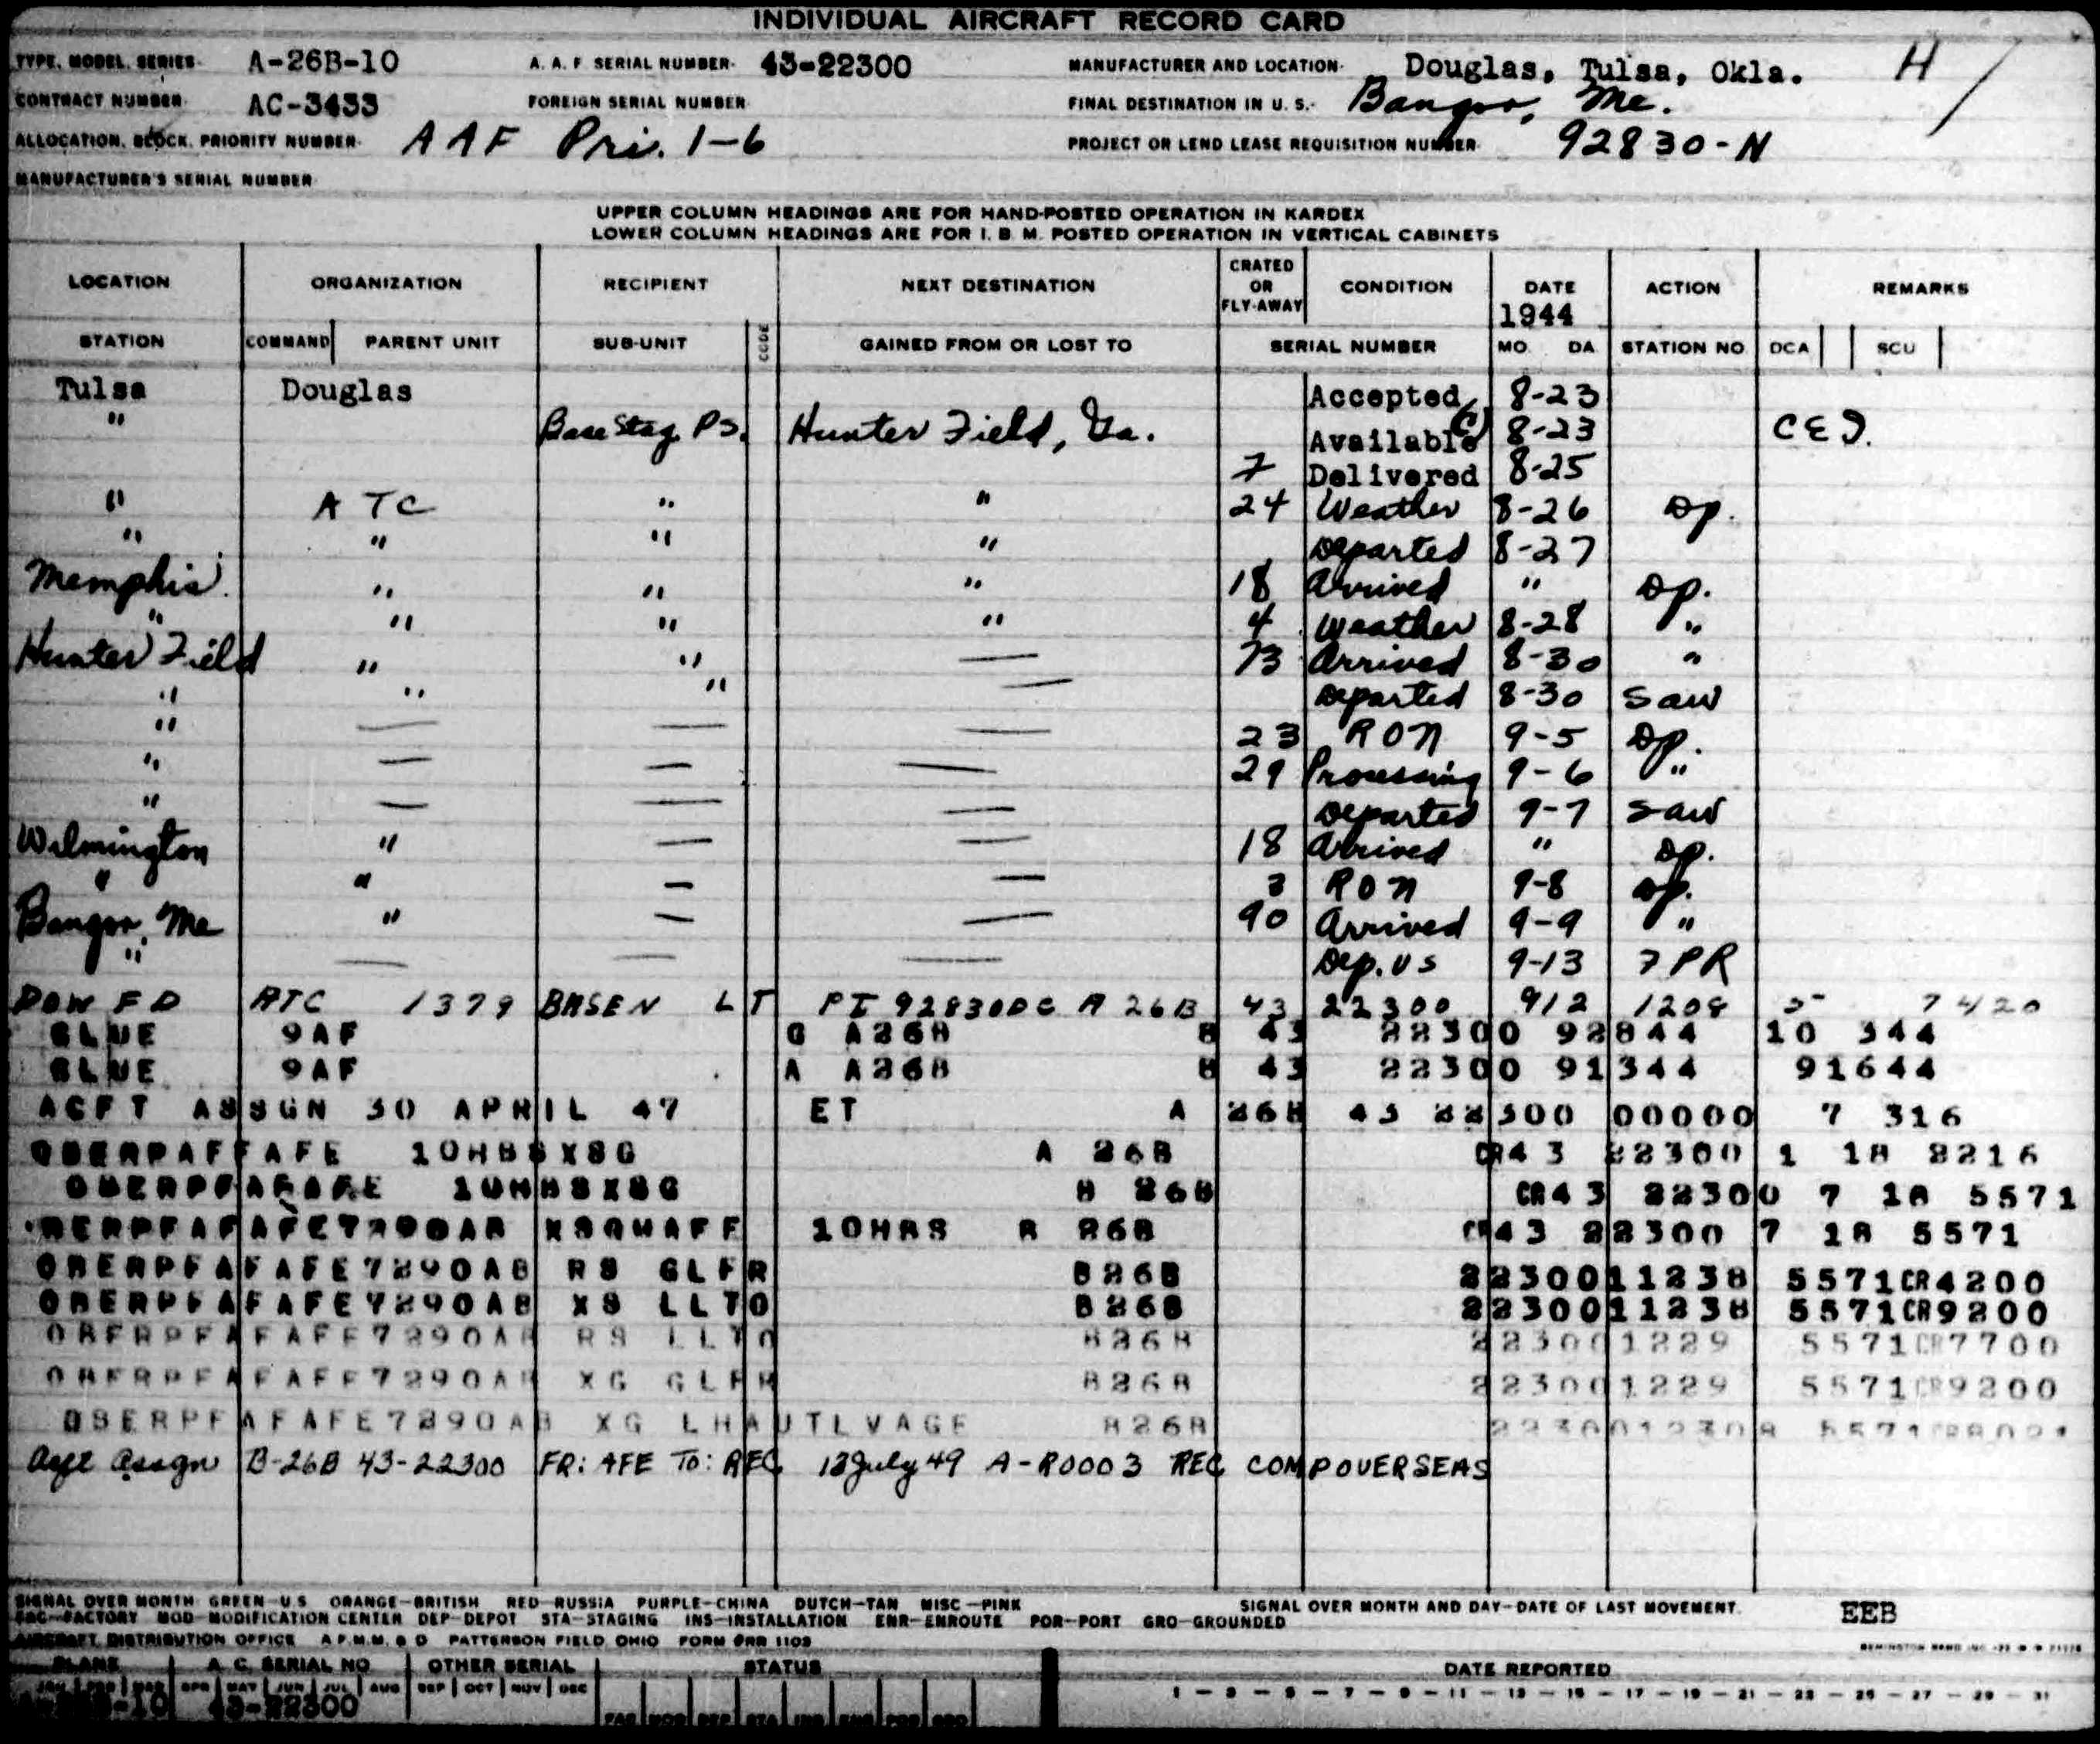 INDIVIDUAL AIRCRAFT RECORD CARD
TYPE, MODEL, SERIES- A-26B-10 A. A. F SERIAL NUMBER- 43-22300 MANUFACTURER AND LOCATION- Douglas, Tulsa, Okla. H /
CONTRACT NUMBER- AC-3433 FOREIGN SERIAL NUMBER FINAL DESTINATION IN U. S.- Bangor, Me.
ALLOCATION, BLOCK, PRIORITY NUMBER- AAF Pri. 1-6 PROJECT OR LEND LEASE REQUISITION NUMBER- 92830-N
MANUFACTURER'S SERIAL NUMBER
UPPER COLUMN HEADINGS ARE FOR HAND-POSTED OPERATION IN KARDEX
LOWER COLUMN HEADINGS ARE FOR I. B. M. POSTED OPERATION IN VERTICAL CABINETS
LOCATION ORGANIZATION RECIPIENT NEXT DESTINATION CRATED OR FLY-AWAY CONDITION DATE 1944 ACTION REMARKS
STATION COMMAND PARENT UNIT SUB-UNIT CODE GAINED FROM OR LOST TO SERIAL NUMBER MO. DA. STATION NO. DCA SCU
Tulsa Douglas Accepted 8-23
" Base Stag. Ps. Hunter Field, Ga. Available 8-23
7 Delivered 8-25
" ATC " " 24 Weather 8-26 Dp.
" " " " Departed 8-27
Memphis " " " 18 Arrived " Dp.
" " " " 4 Weather 8-28 "
Hunter Field " " — 73 Arrived 8-30 "
" " " — Departed 8-30 Saw
" — — — 23 RON 9-5 Dp.
" — — — 29 Processing 9-6 "
" — — — Departed 9-7 Saw
Wilmington " — — 18 Arrived " Dp.
" " — — 3 RON 9-8 Dp.
Bangor, Me " — — 90 Arrived 9-9 "
" — — — Dep. US 9-13 7PR
DOW FD ATC 1379 BASEN LT PI 92830DC A 26B 43 22300 912 1208 7420
GLUE 9AF G A26B B 43 22300 92844 10 344
GLUE 9AF A A26B B 43 22300 91344 91644
ACFT ASSGN 30 APRIL 47 ET A 26B 43 22300 00000 7 316
OBERPAFFAFE 10HBSXSG A 26B CR43 22300 1 18 2216
B 26B CR43 22300 7 18 5571
10HRS B 26B CR43 22300 7 18 5571
OBERPFAFAFE7290AB RS GLFR B26B 2230011238 5571CR4200
OBERPFAFAFE7290AB XS LLTO B26B 2230011238 5571CR9200
OBERPFAFAFE7290AB RS LLTO B26B 223001229 5571CR7700
OBERPFAFAFE7290AB XG GLFR B26B 223001229 5571CR9200
OBERPFAFAFE7290AB XG LHAUTLVAGE B26B
Acft Assgn B-26B 43-22300 FR: AFE TO: REC 12 July 49 A-R0003 REC COMP OVERSEAS
SIGNAL OVER MONTH GREEN-U.S. ORANGE-BRITISH RED-RUSSIA PURPLE-CHINA DUTCH-TAN MISC-PINK SIGNAL OVER MONTH AND DAY-DATE OF LAST MOVEMENT. EEB
FAC-FACTORY MOD-MODIFICATION CENTER DEP-DEPOT STA-STAGING INS-INSTALLATION ENR-ENROUTE POR-PORT GRO-GROUNDED
AIRCRAFT DISTRIBUTION OFFICE PATTERSON FIELD, OHIO FORM
PLANE A. C. SERIAL NO OTHER SERIAL STATUS DATE REPORTED
JAN FEB MAR APR MAY JUN JUL AUG SEP OCT NOV DEC 1 - 3 - 5 - 7 - 9 - 11 - 13 - 15 - 17 - 19 - 21 - 23 - 25 - 27 - 29 - 31
43-22300